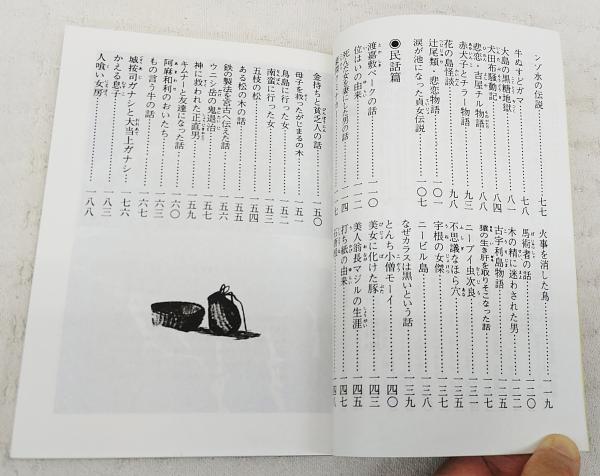 ンゾ水の伝説……七七
牛ぬすどガマ……七八
大島の黒糖地獄……八一
犬田布騒動記……八四
悲恋・吉屋チル物語……
赤犬子とチラー物語……九三
花の島怪談……九八
辻尾類・悲恋物語……一〇一
涙が池になった貞女伝説……一〇七
●民話篇
渡嘉敷ペークの話……一一〇
位はいの由来……
死人の女を妻にした男の話……
火事を消した鳥……一一九
馬術者の話……一二一
木の精に迷わされた男……一二二
古宇利島物語……一二六
猿の生き肝を取りそこなった話……一二七
ニーブイ虫次良……
不思議なほら穴……一三五
宇根の女傑……
ニービル島……一三八
なぜカラスは黒いという話……一三九
とんち小僧モーイ……一四〇
美女に化けた豚……一四三
美人翁長マジルの生涯……一四五
打ち紙の由来……一四七
金持ちと貧乏人の話……一五〇
母子を救ったがじまるの木……一五一
鳥島に行った女……
南蛮に行った女……一五三
五枝の松……一五四
ある松の木の話……一五五
鉄の製法を宮古へ伝えた話……一五五
ウニシ岳の鬼退治……
神に救われた正直男……一五九
キムナーと友達になった話……一六〇
阿麻和利のおいたち……一六三
もの言う牛の話……一六七
城按司ガナシと大当上ガナシ……一七六
かえる息子……
人喰い女房……一八八